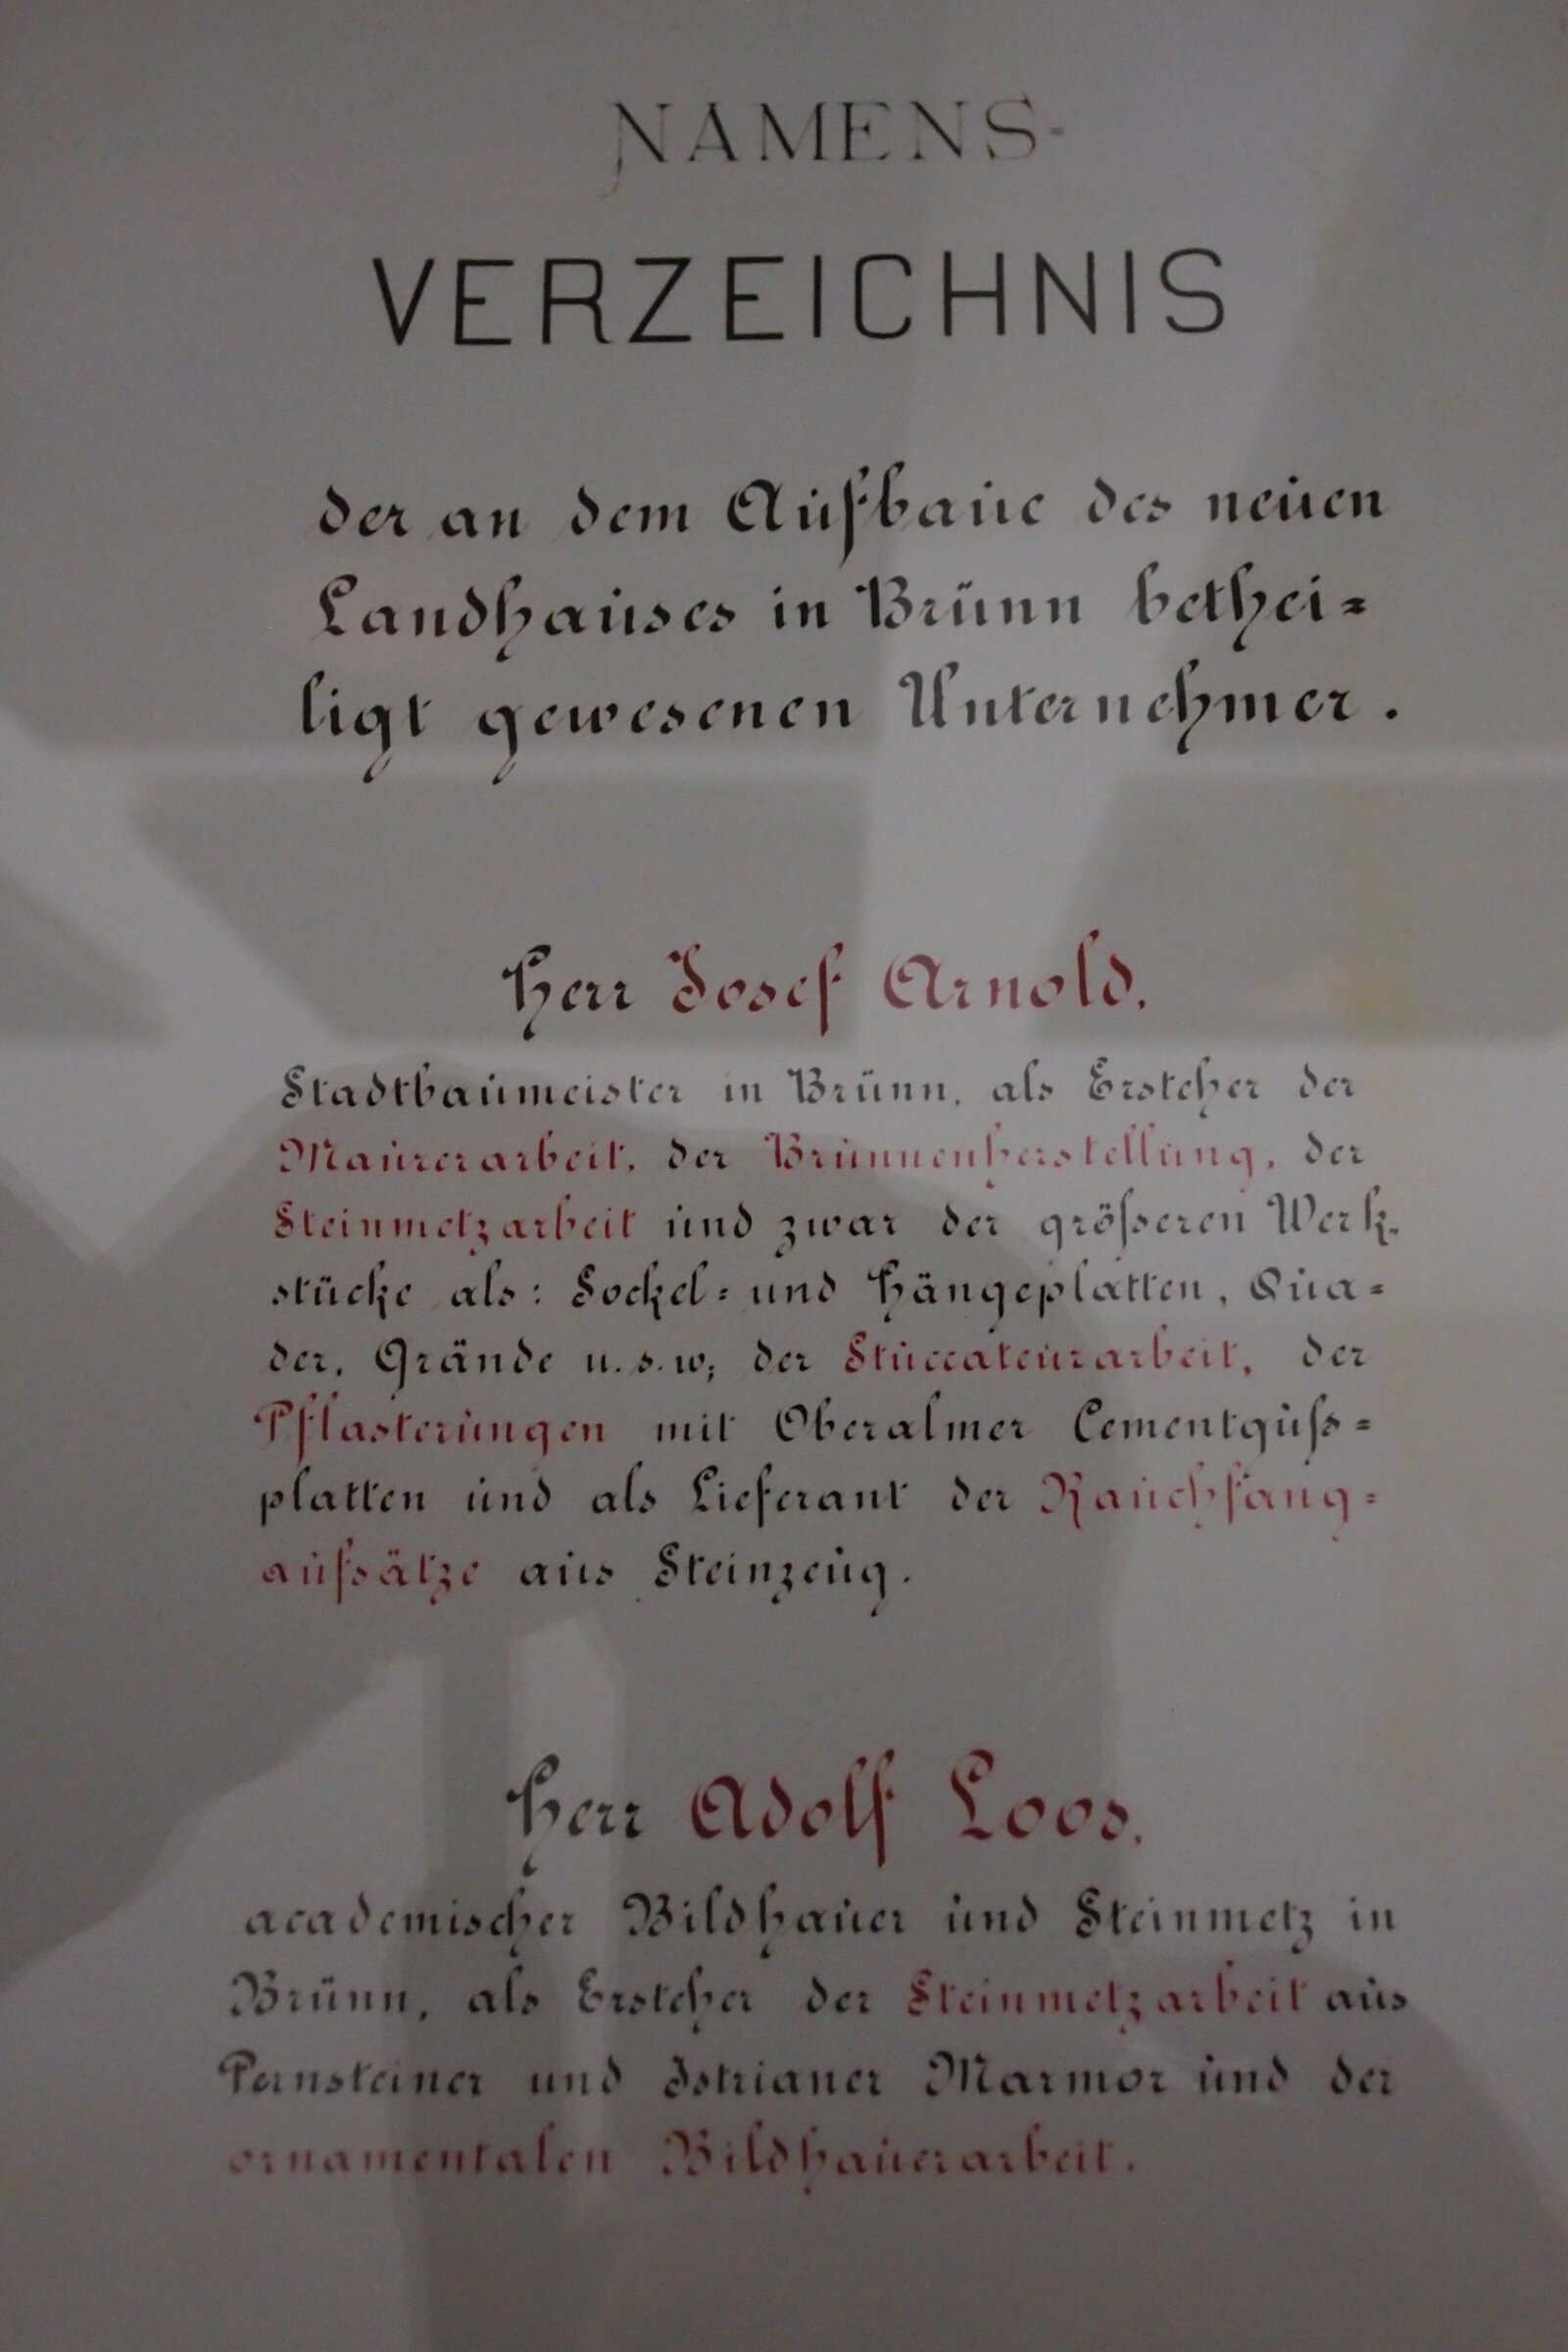 NAMENS-
VERZEICHNIS
der an dem Aufbaue des neuen
Landhauses in Brünn bethei=
ligt gewesenen Unternehmer.
Herr Josef Arnold,
Stadtbaumeister in Brünn, als Ersteher der
Maurerarbeit, der Brunnenherstellung, der
Steinmetzarbeit und zwar der größeren Werk=
stücke als: Sockel= und Hängeplatten, Qua=
der, Grände u.s.w; der Stuccateurarbeit, der
Pflasterungen mit Oberalmer Cementguſs=
platten und als Lieferant der Rauchfang=
aufsätze aus Steinzeug.
Herr Adolf Loos,
academischer Bildhauer und Steinmetz in
Brünn, als Ersteher der Steinmetzarbeit aus
Pernsteiner und Istrianer Marmor und der
ornamentalen Bildhauerarbeit.